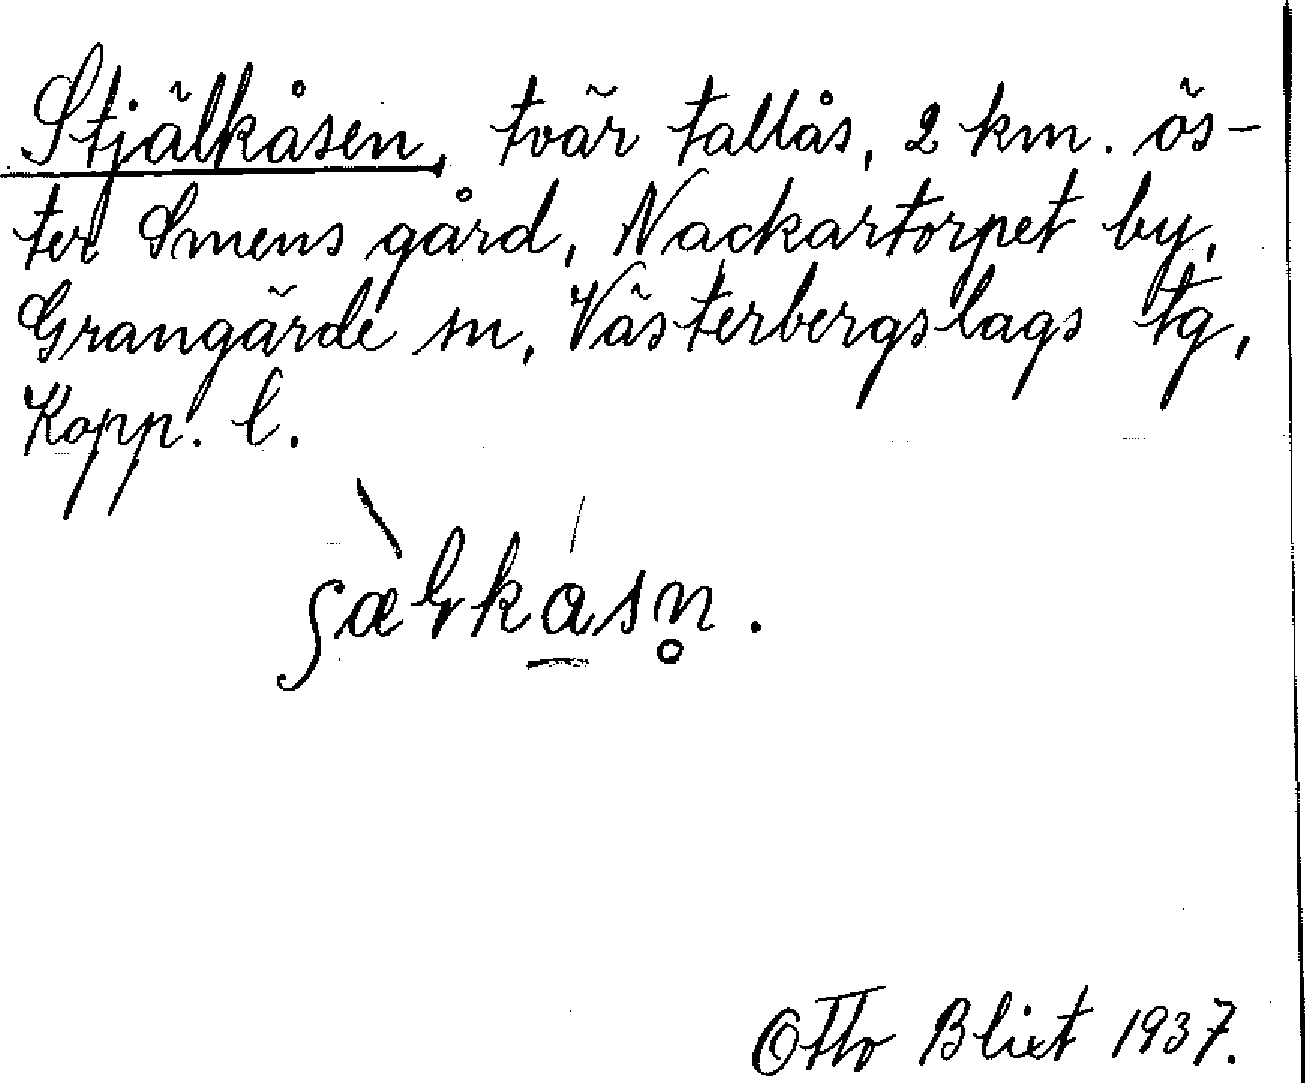 Stjälkåsen, tvär tallås, 2 km. ös-
ter Smens gård, Nackartorpet by,
Grangärde sn, Västerbergslags tg,
Kopp. l.
Otto Blixt 1937.